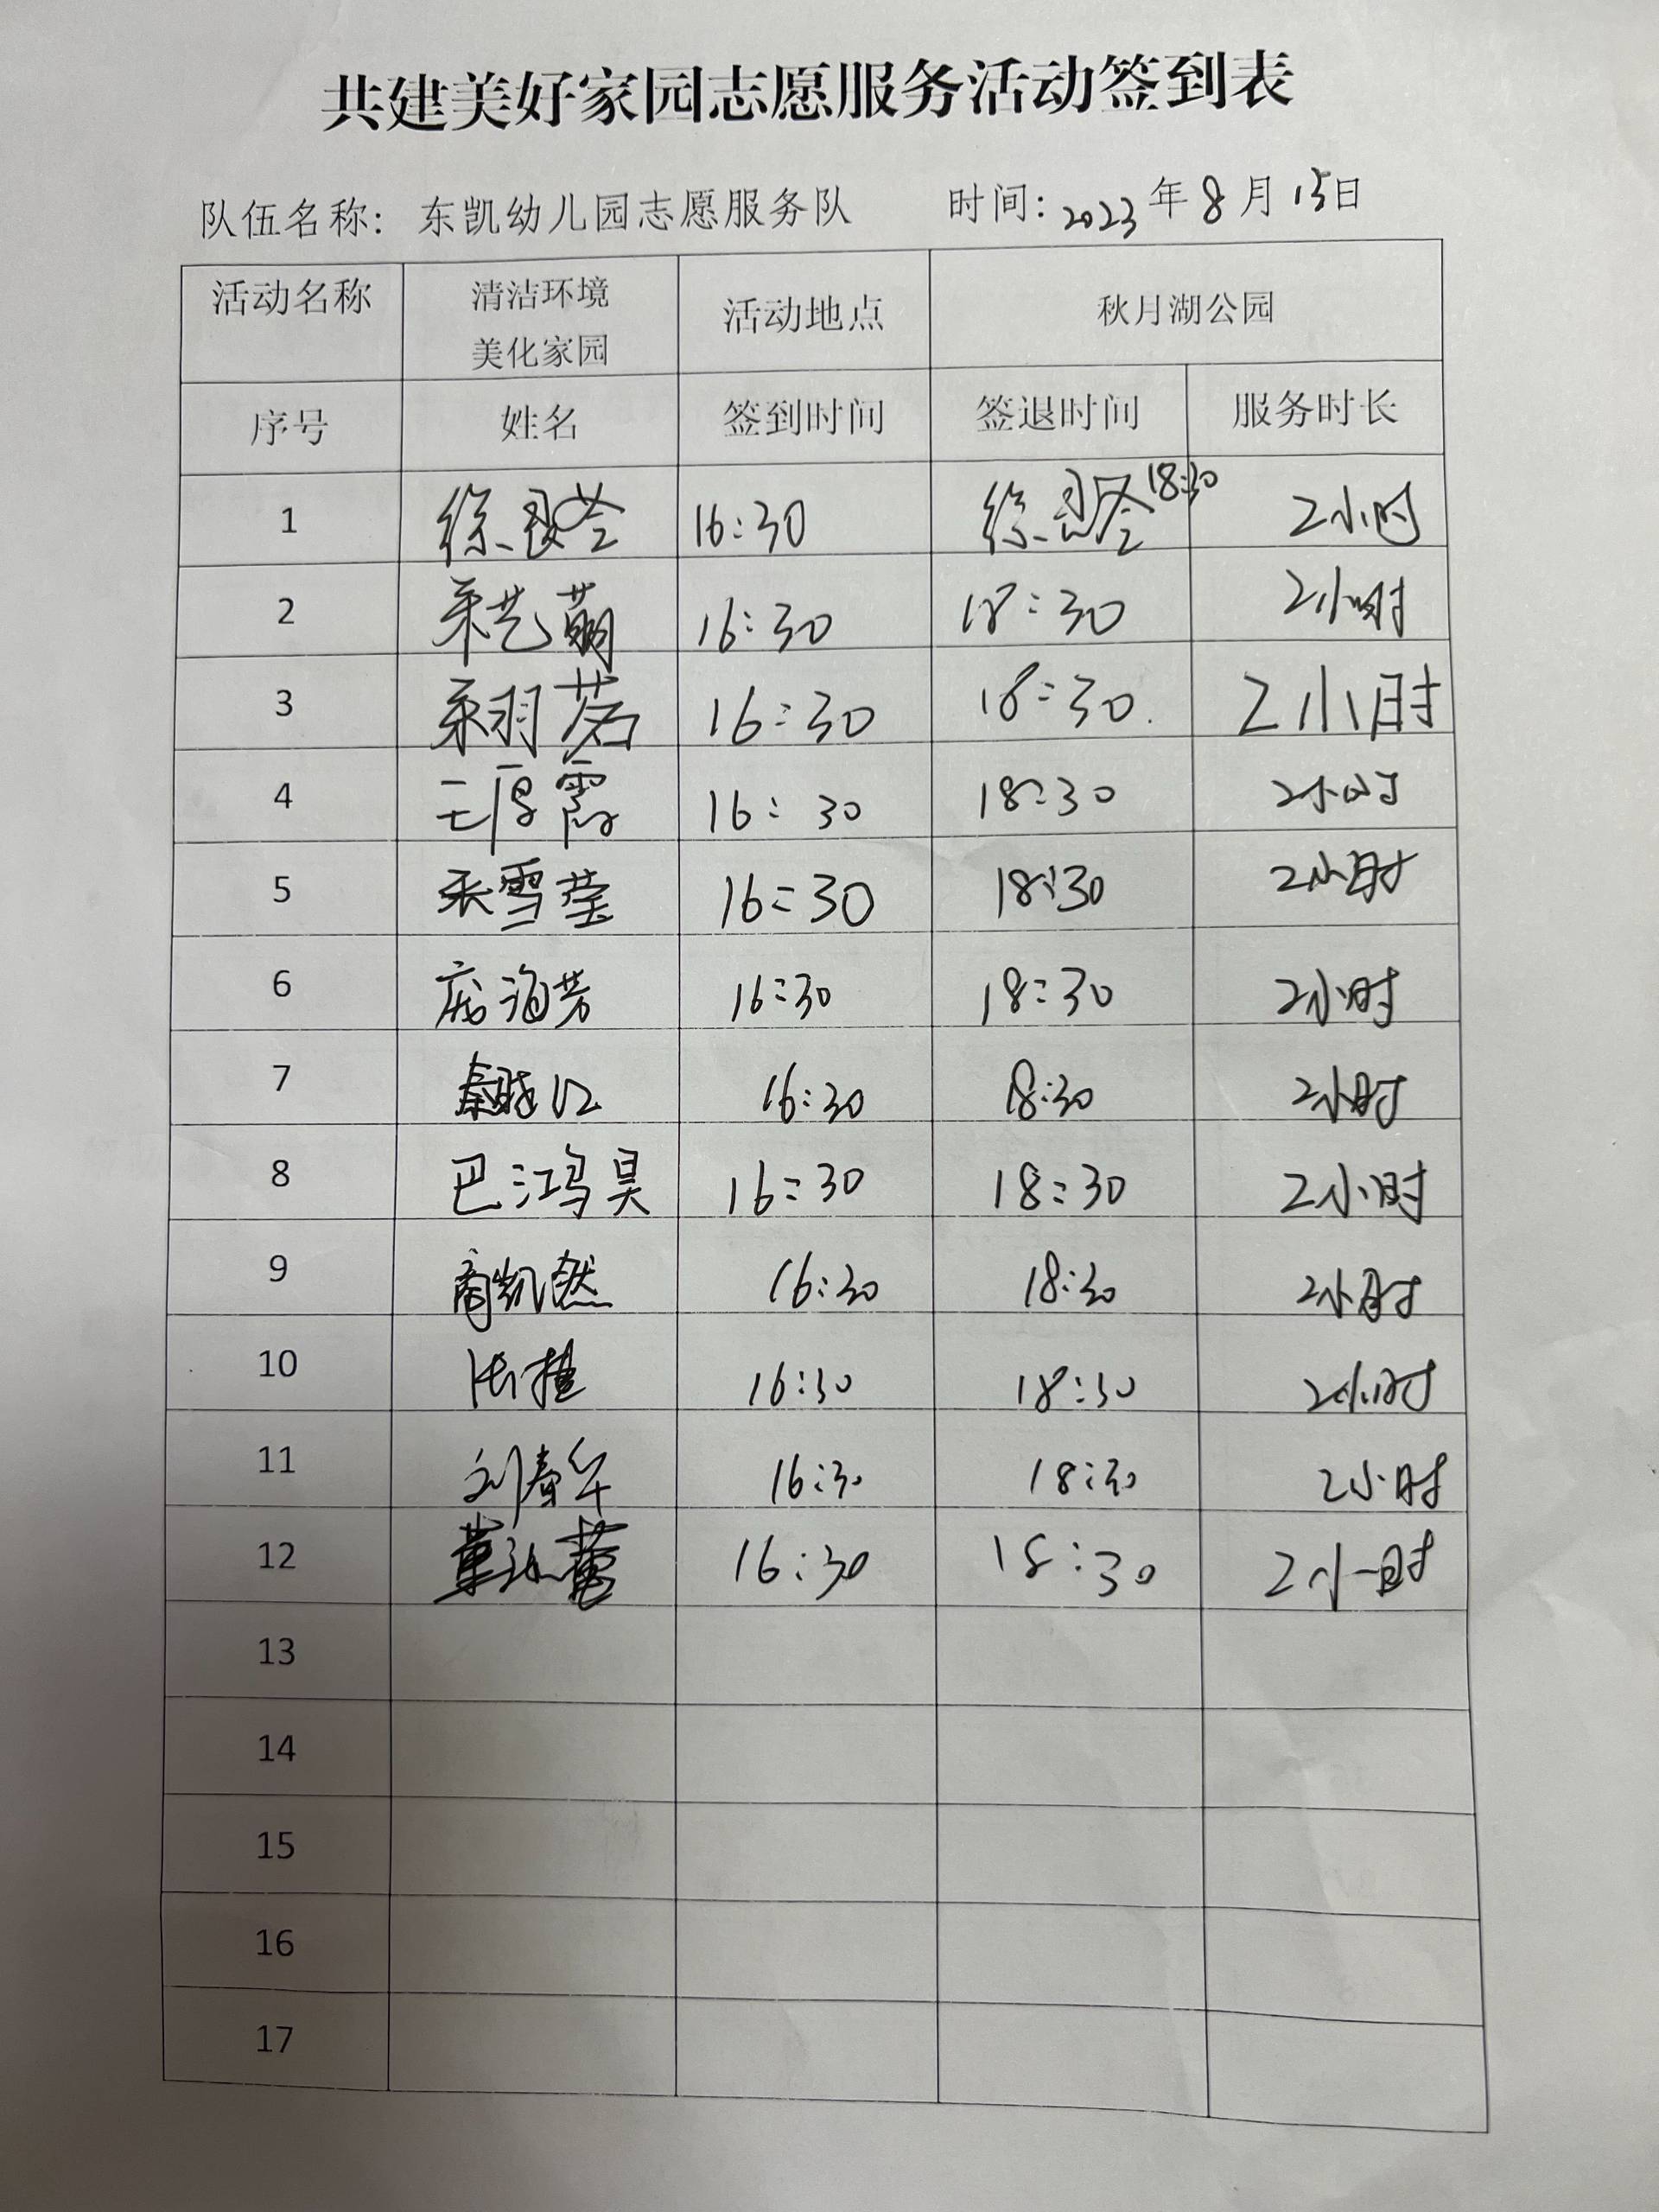 共建美好家园志愿服务活动签到表
队伍名称: 东凯幼儿园志愿服务队 时间: 2023年8月15日
活动名称 清洁环境 美化家园 活动地点 秋月湖公园
序号 姓名 签到时间 签退时间 服务时长
1 徐 16:30 徐 18:30 2小时
2 艺萌 16:30 18:30 2小时
3 羽茗 16:30 18:30 2小时
4 王厚霞 16:30 18:30 2小时
5 张雪莹 16:30 18:30 2小时
6 海芳 16:30 18:30 2小时
7 秦 16:30 18:30 2小时
8 巴鸿昊 16:30 18:30 2小时
9 商凯然 16:30 18:30 2小时
10 16:30 18:30 2小时
11 刘春华 16:30 18:30 2小时
12 董 16:30 18:30 2小时
13
14
15
16
17